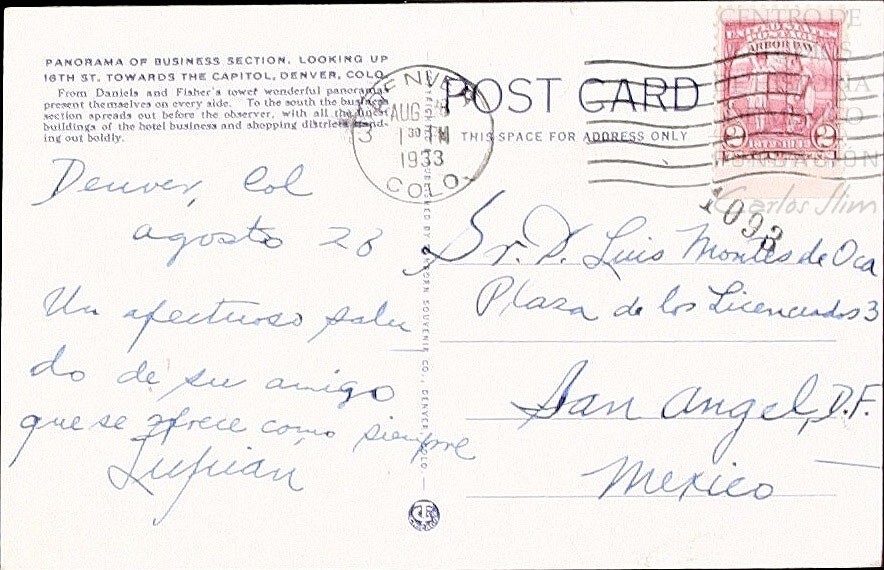 PANORAMA OF BUSINESS SECTION, LOOKING UP
16TH ST. TOWARDS THE CAPITOL, DENVER, COLO.
From Daniels and Fisher's tower wonderful panoramas
present themselves on every side. To the south the business
section spreads out before the observer, with all the finest
buildings of the hotel business and shopping districts stand-
ing out boldly.
Denver, Col
agosto 28
Un afectuoso salu
do de su amigo
que se ofrece como siempre
DENVER
AUG
1 30 PM
1933
COLO.
POST CARD
THIS SPACE FOR ADDRESS ONLY
SANBORN SOUVENIR CO., DENVER, COLO.
UNITED STATES
POSTAGE
ARBOR DAY
2 2
CENTRO DE
FUNDACIÓN
Carlos Slim
1093
Sr. D. Luis Montes de Oca
Plaza de los Licenciados 3
San Angel, D.F.
Mexico